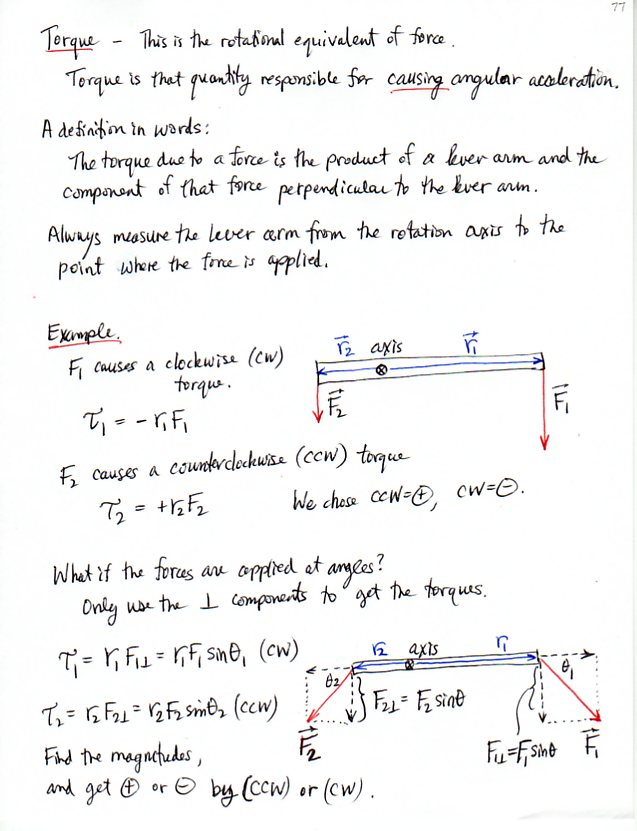 77
Torque – This is the rotational equivalent of force.
Torque is that quantity responsible for causing angular acceleration.
A definition in words:
The torque due to a force is the product of a lever arm and the
component of that force perpendicular to the lever arm.
Always measure the lever arm from the rotation axis to the
point where the force is applied.
Example.
F₁ causes a clockwise (CW)
torque.
τ₁ = − r₁F₁
r⃗₂ axis r⃗₁
F⃗₂
F⃗₁
F₂ causes a counterclockwise (CCW) torque
τ₂ = +r₂F₂
We chose CCW=⊕, CW=⊖.
What if the forces are applied at angles?
Only use the ⊥ components to get the torques.
τ₁ = r₁F₁⊥ = r₁F₁ sinθ₁ (CW)
τ₂ = r₂F₂⊥ = r₂F₂ sinθ₂ (CCW)
Find the magnitudes,
and get ⊕ or ⊖ by (CCW) or (CW).
r₂ axis r₁
θ₂
θ₁
F₂⊥ = F₂ sinθ
F⃗₂
F₁⊥=F₁sinθ
F⃗₁